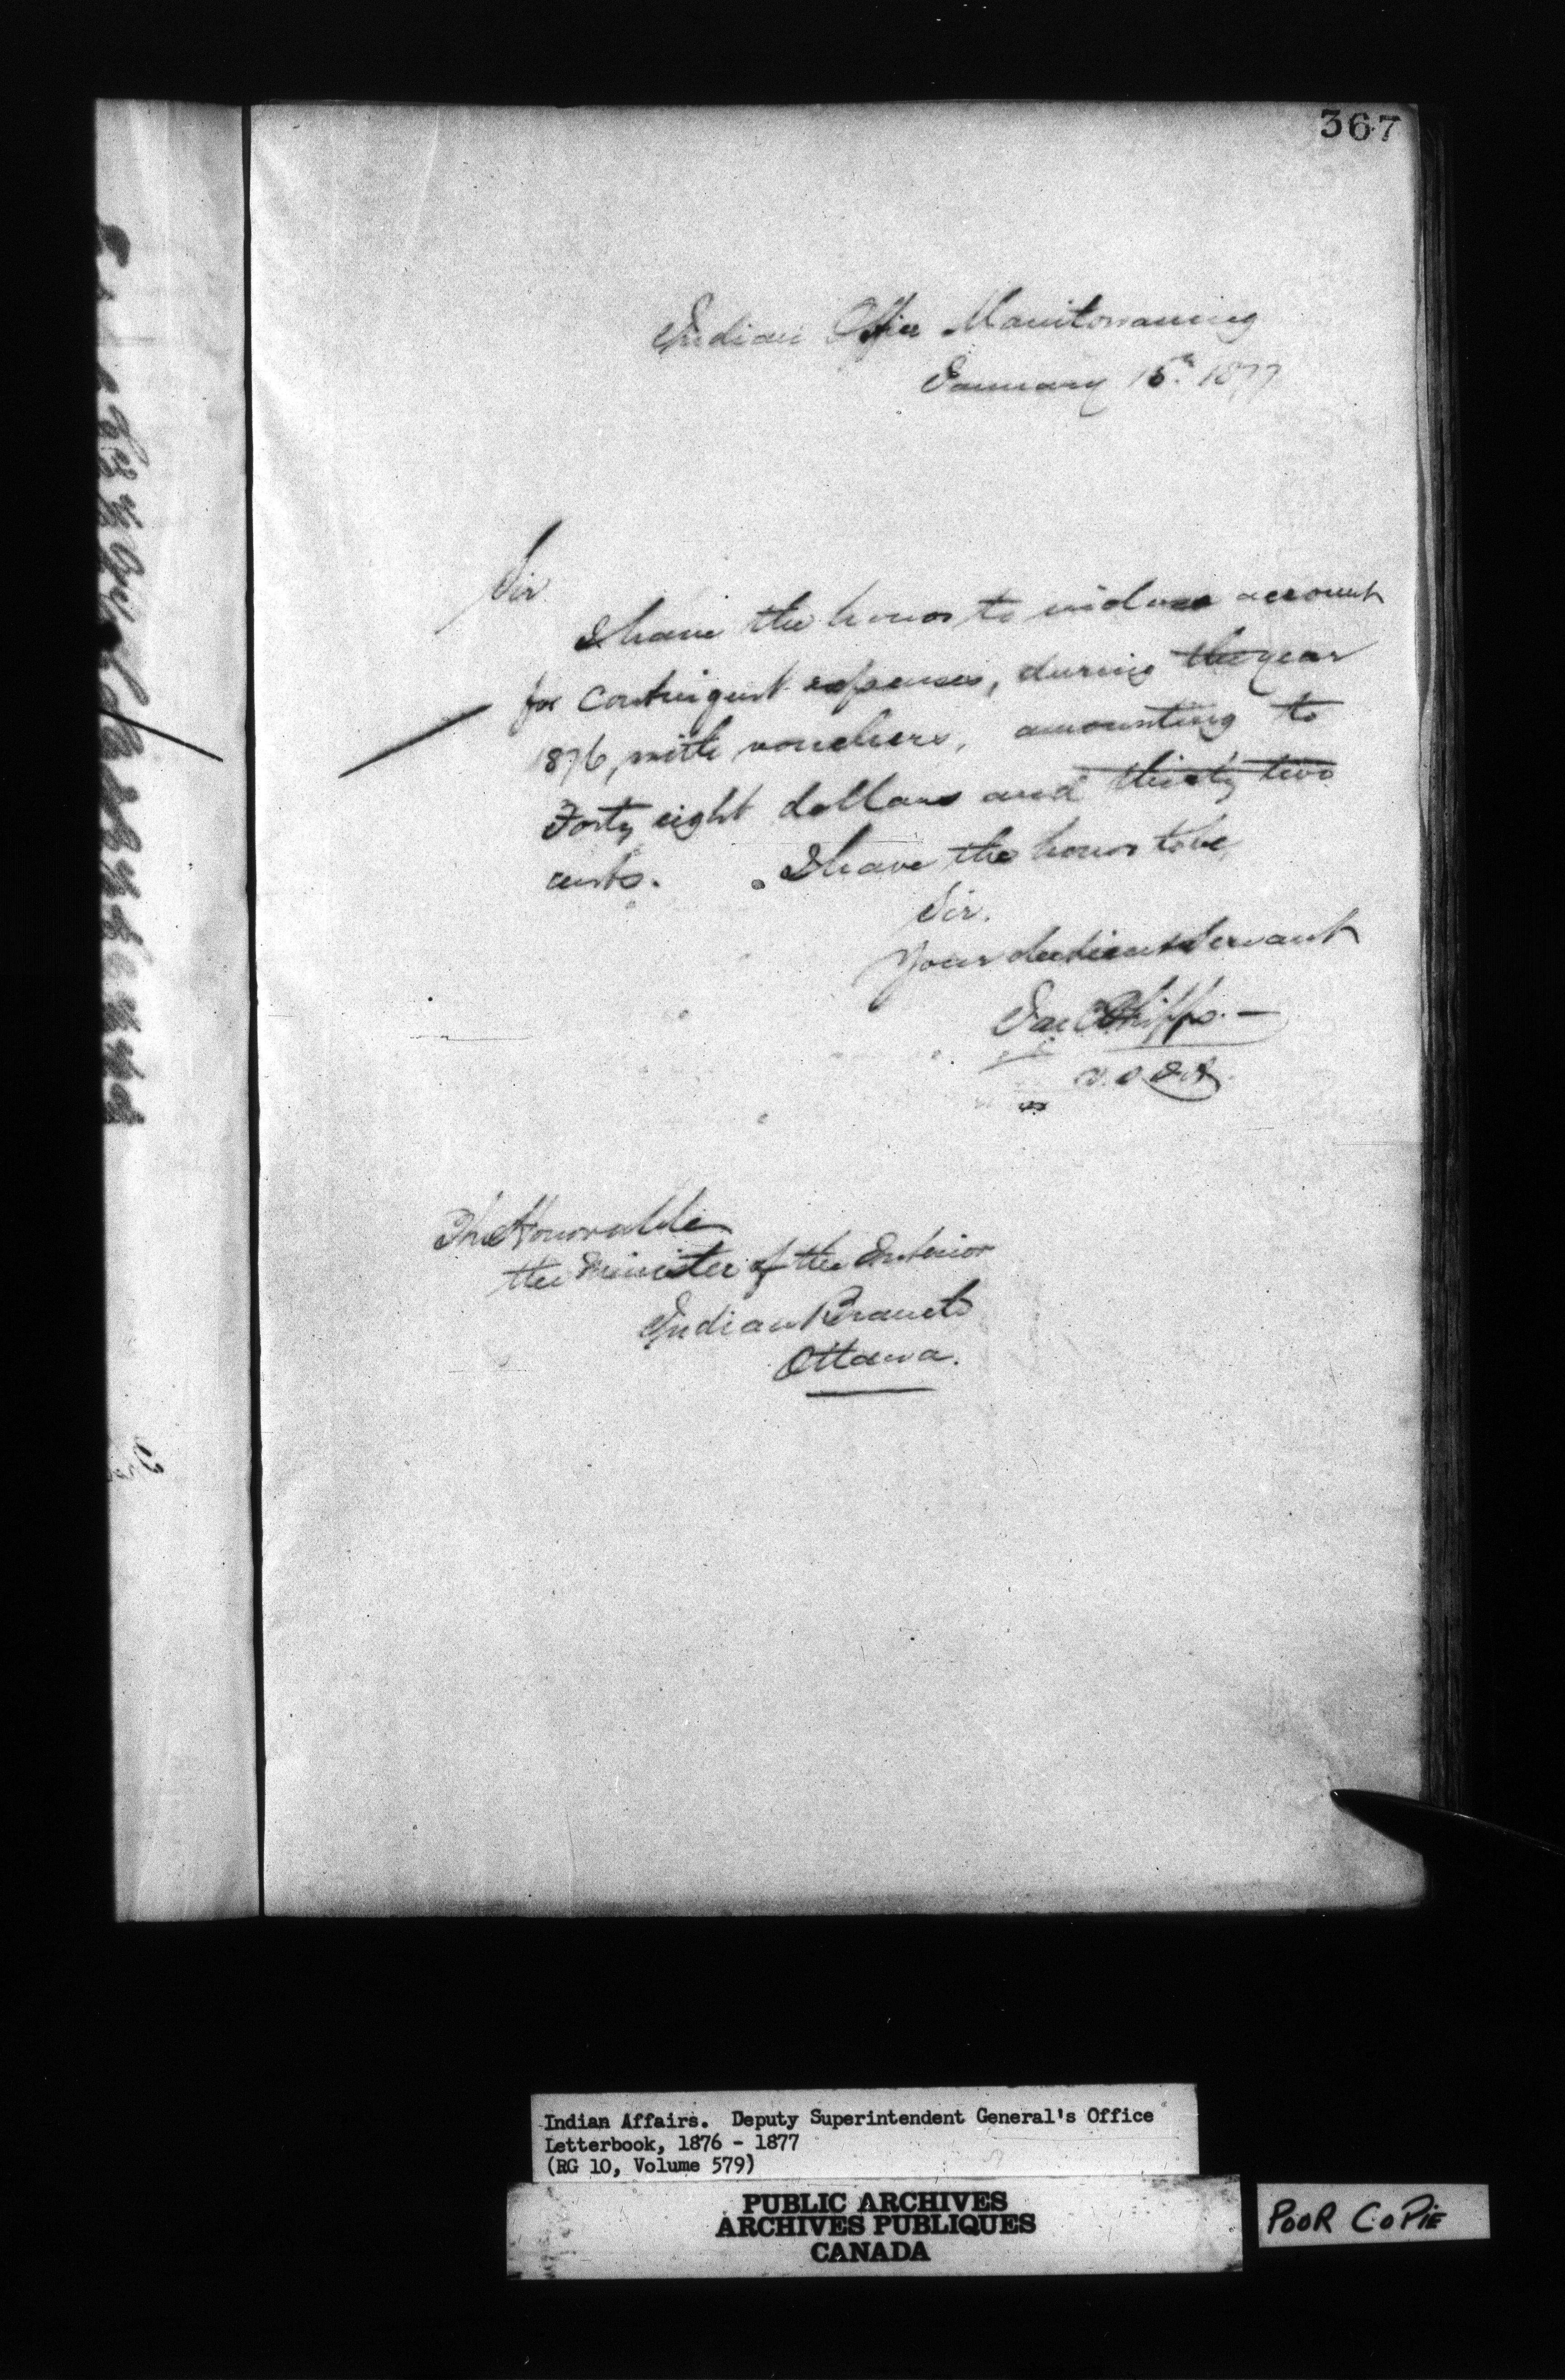 367
Indian Office Manitowaning
January 15th 1877
Sir
I have the honor to enclose account
for contingent expenses, during the year
1876, with vouchers, amounting to
Forty eight dollars and thirty two
cents. I have the honor to be
Sir.
Your obedient Servant
Jas C Phipps.
V. S. I. A.
The Honorable
the Minister of the Interior
Indian Branch
Ottawa.
Indian Affairs. Deputy Superintendent General's Office
Letterbook, 1876 - 1877
(RG 10, Volume 579)
PUBLIC ARCHIVES
ARCHIVES PUBLIQUES
CANADA
POOR COPIE